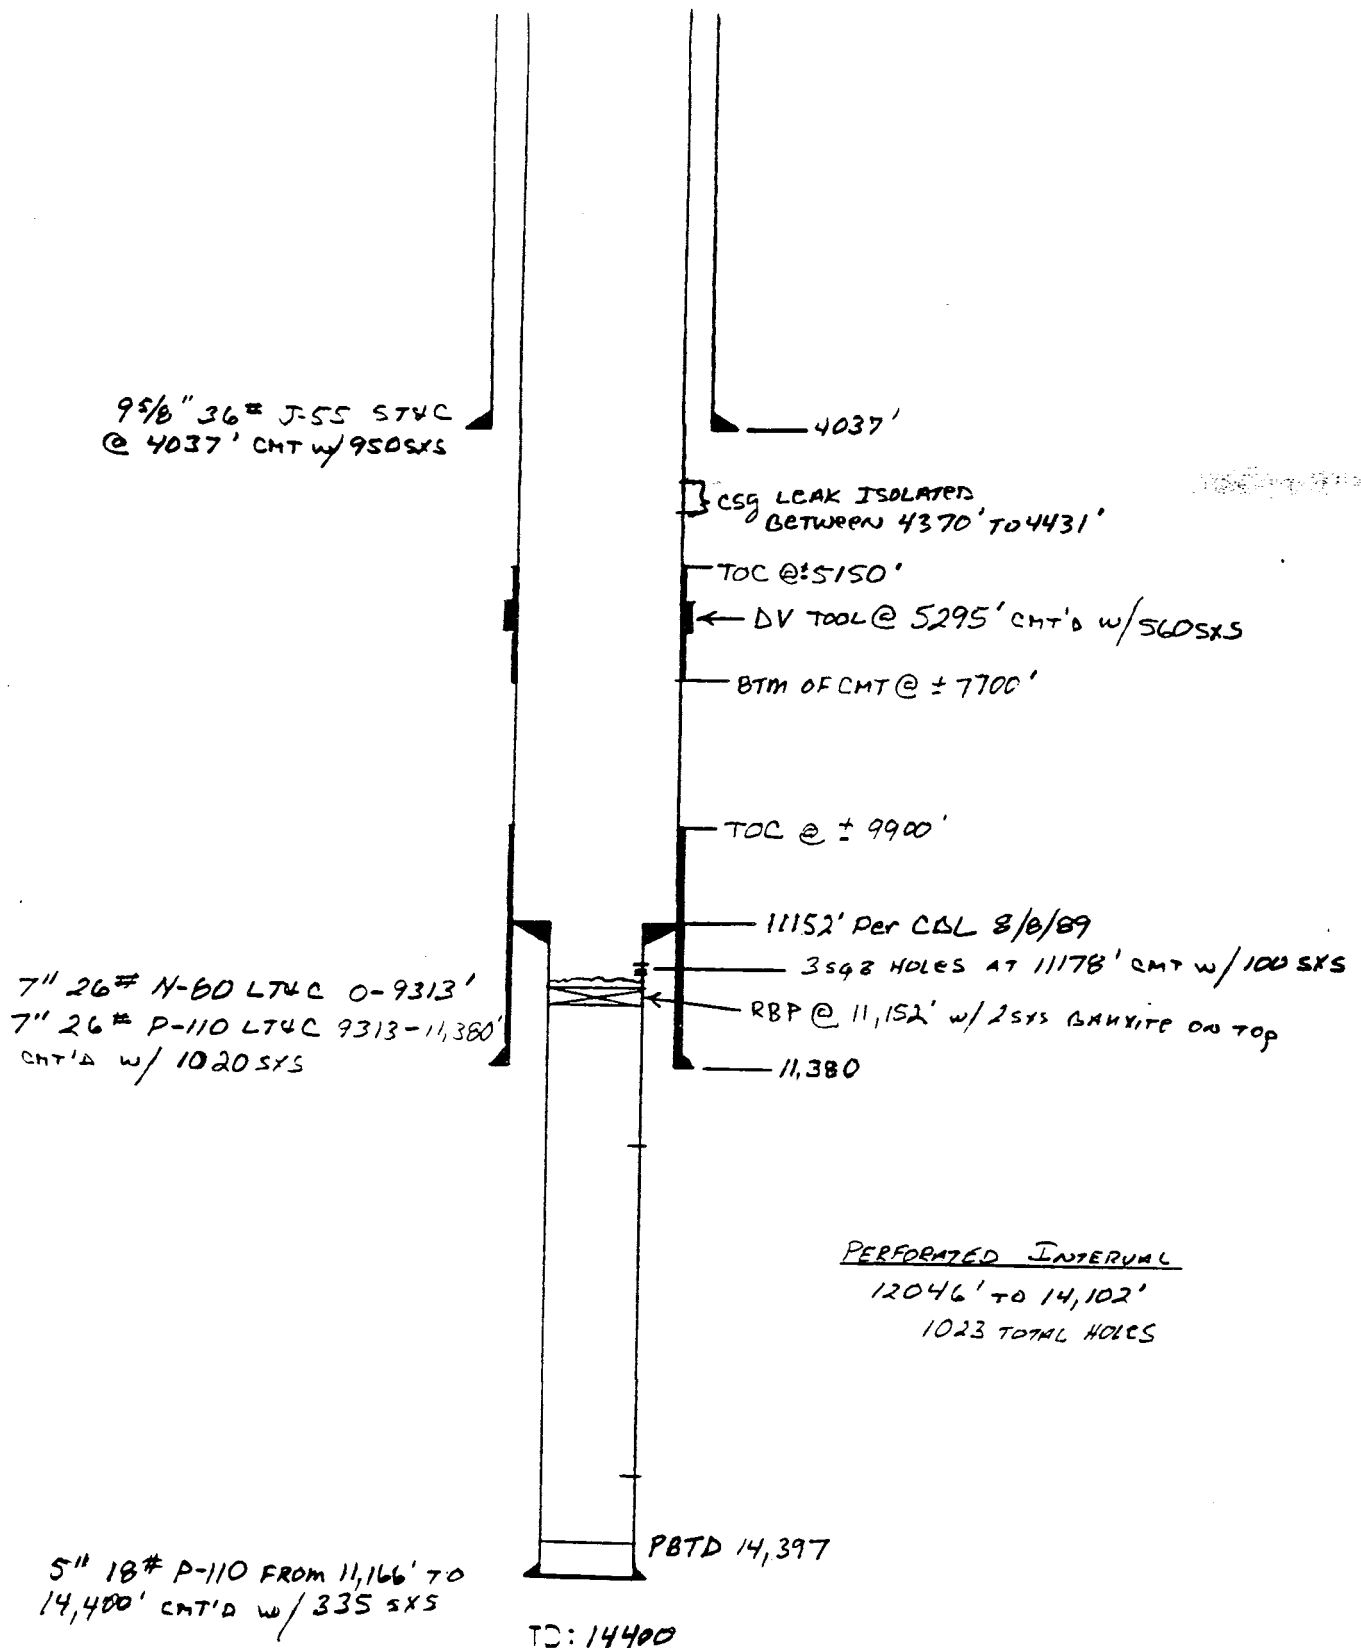 9 5/8" 36# J-55 ST&C
@ 4037' CMT w/ 950 SXS
4037'
csg LEAK ISOLATED
BETWEEN 4370' TO 4431'
TOC @ ± 5150'
DV TOOL @ 5295' CMT'D w/ 560 SXS
BTM OF CMT @ ± 7700'
TOC @ ± 9900'
11152' Per CBL 8/8/89
3 sqz HOLES AT 11178' CMT w/ 100 SXS
RBP @ 11,152' w/ 2 SXS BAUXITE ON TOP
7" 26# N-80 LT&C 0-9313'
7" 26# P-110 LT&C 9313-11,380'
CMT'D w/ 1020 SXS
11,380
PERFORATED INTERVAL
12046' TO 14,102'
1023 TOTAL HOLES
PBTD 14,397
5" 18# P-110 FROM 11,166' TO
14,400' CMT'D w/ 335 SXS
TD: 14400